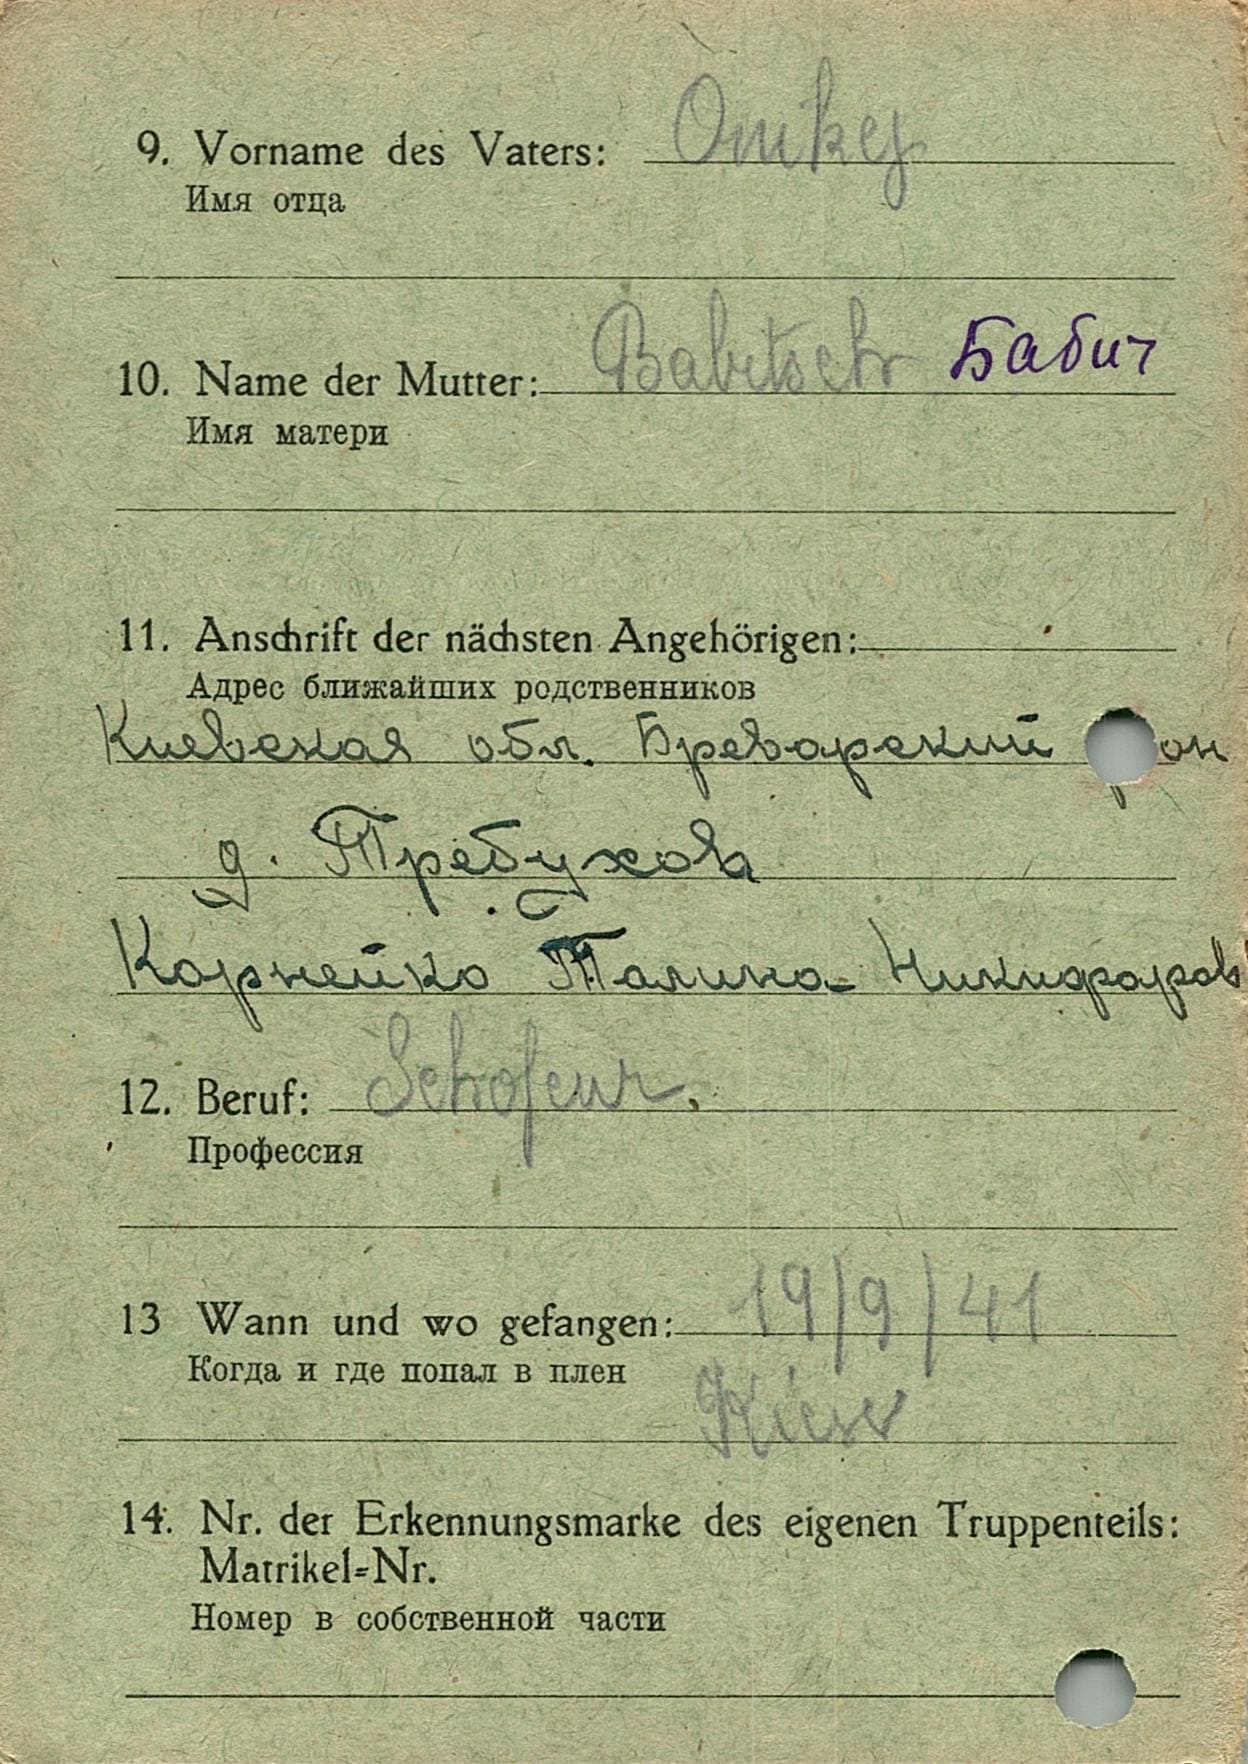 9. Vorname des Vaters: Onikej
Имя отца
10. Name der Mutter: Babitsch Бабич
Имя матери
11. Anschrift der nächsten Angehörigen:
Адрес ближайших родственников
Киевская обл. Бреварский он
д. Требухов
Корнейко Талина Никифоров
12. Beruf: Schofeur.
Профессия
13 Wann und wo gefangen: 19/9/41
Когда и где попал в плен
Kiew
14. Nr. der Erkennungsmarke des eigenen Truppenteils:
Matrikel=Nr.
Номер в собственной части